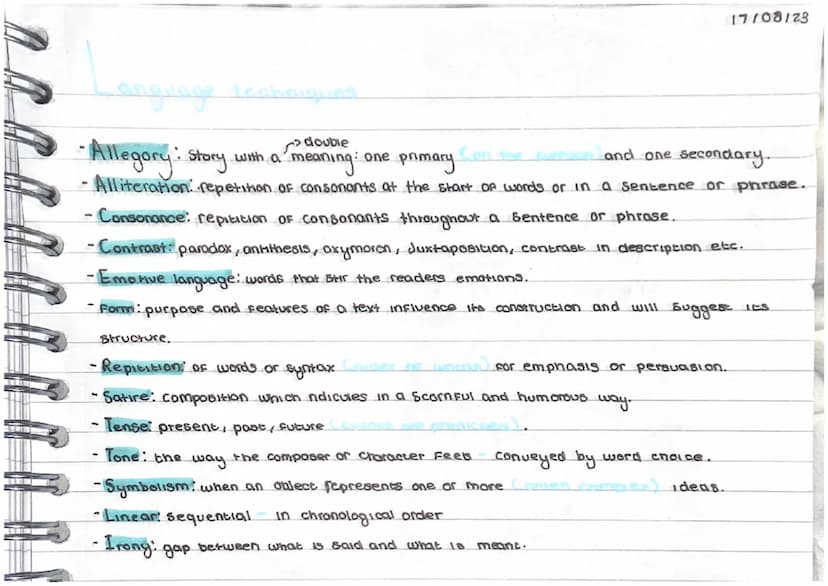 17/08/23
Language techniques
double
- Allegory: story with a meaning: one primary (on the surface) and one secondary.
- Alliteration: repetition of consonants at the start of words or in a sentence or phrase.
- Consonance: repitition of consonants throughout a sentence or phrase.
- Contrast: paradox, antithesis, oxymoron, Juxtaposition, contrast in description etc.
- Emotive language: words that stir the readers emotions.
- Form: purpose and features of a text influence its construction and will suggest its
structure.
- Repitition: of words or syntax (order of words) for emphasis or persuasion.
- Satire: composition which ridicules in a scornful and humorous way.
- Tense: present, past, future .
- Tone: the way the composer or character feels - conveyed by word choice.
- Symbolism: when an object represents one or more (often complex) ideas.
- Linear: sequential - in chronological order
- Irony: gap between what is said and what is meant.